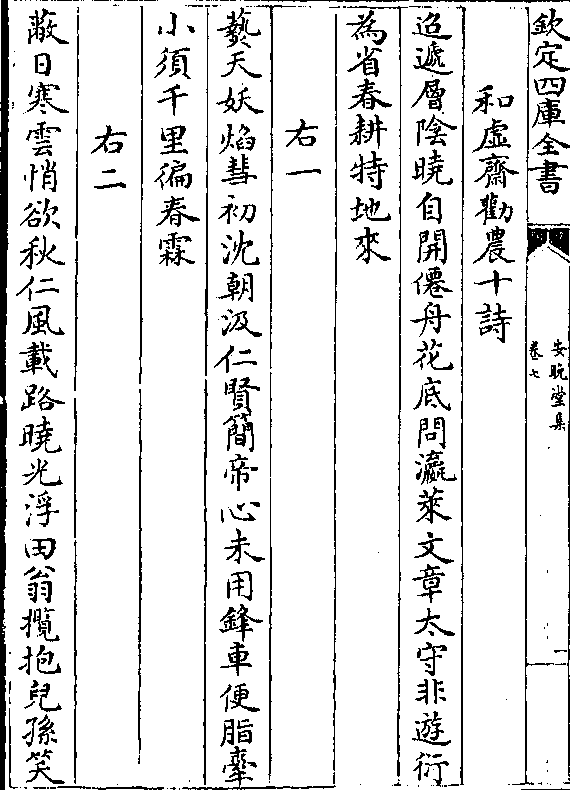 欽定四庫全書
安晚堂集
卷七
一
和虛齋勸農十詩
迢遞層陰曉自開僊舟花底問瀛萊文章太守非遊衍
為省春耕特地來
右一
爇天妖焰彗初沈朝汲仁賢簡帝心未用鋒車便脂舝
小須千里徧春霖
右二
蔽日寒雲悄欲秋仁風載路曉光浮田翁攬抱兒孫笑